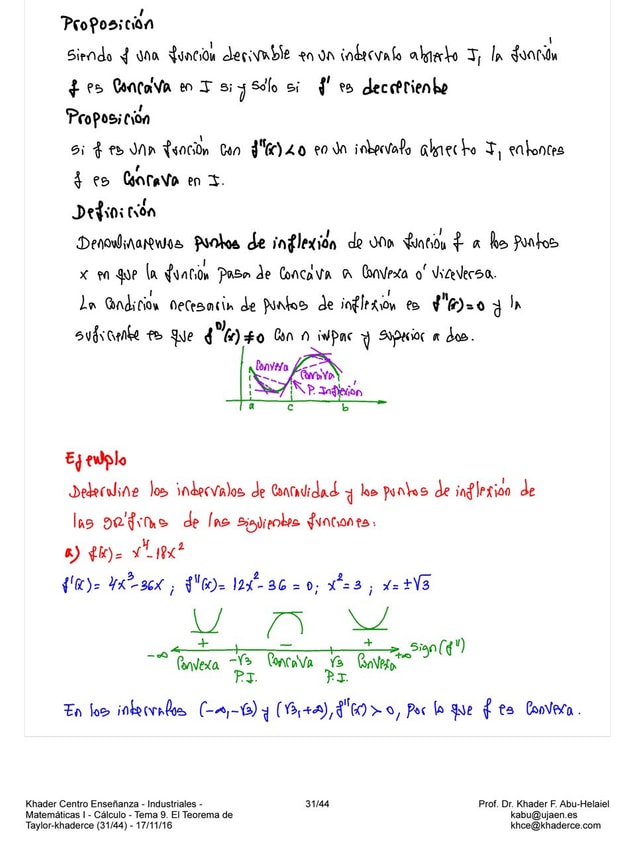 Proposición
Siendo f una función derivable en un intervalo abierto I, la función
f es Concáva en I si y sólo si f' es decreciente
Proposición
Si f es una función con f''(x)<0 en un intervalo abierto I, entonces
f es Cóncava en I.
Definición
Denominaremos puntos de inflexión de una función f a los puntos
x en que la función pasa de Concáva a Convexa o' viceversa.
La Condición necesaria de puntos de inflexión es f''(x)=0 y la
suficiente es que f^n)(x)≠0 con n impar y superior a dos.
Convexa
Concáva
P. Inflexión
a c b
Ejemplo
Determine los intervalos de concavidad y los puntos de inflexión de
las gráficas de las siguientes funciones:
a) f(x)= x⁴-18x²
f'(x)= 4x³-36x ; f''(x)= 12x²-36 = 0; x²=3 ; x=±√3
+ - + Sign(f'')
-∞ Convexa -√3 Concáva √3 Convexa +∞
P.I. P.I.
En los intervalos (-∞,-√3) y (√3,+∞), f''(x)>0, por lo que f es Convexa.
Khader Centro Enseñanza - Industriales - 31/44 Prof. Dr. Khader F. Abu-Helaiel
Matemáticas I - Cálculo - Tema 9. El Teorema de kabu@ujaen.es
Taylor-khaderce (31/44) - 17/11/16 khce@khaderce.com